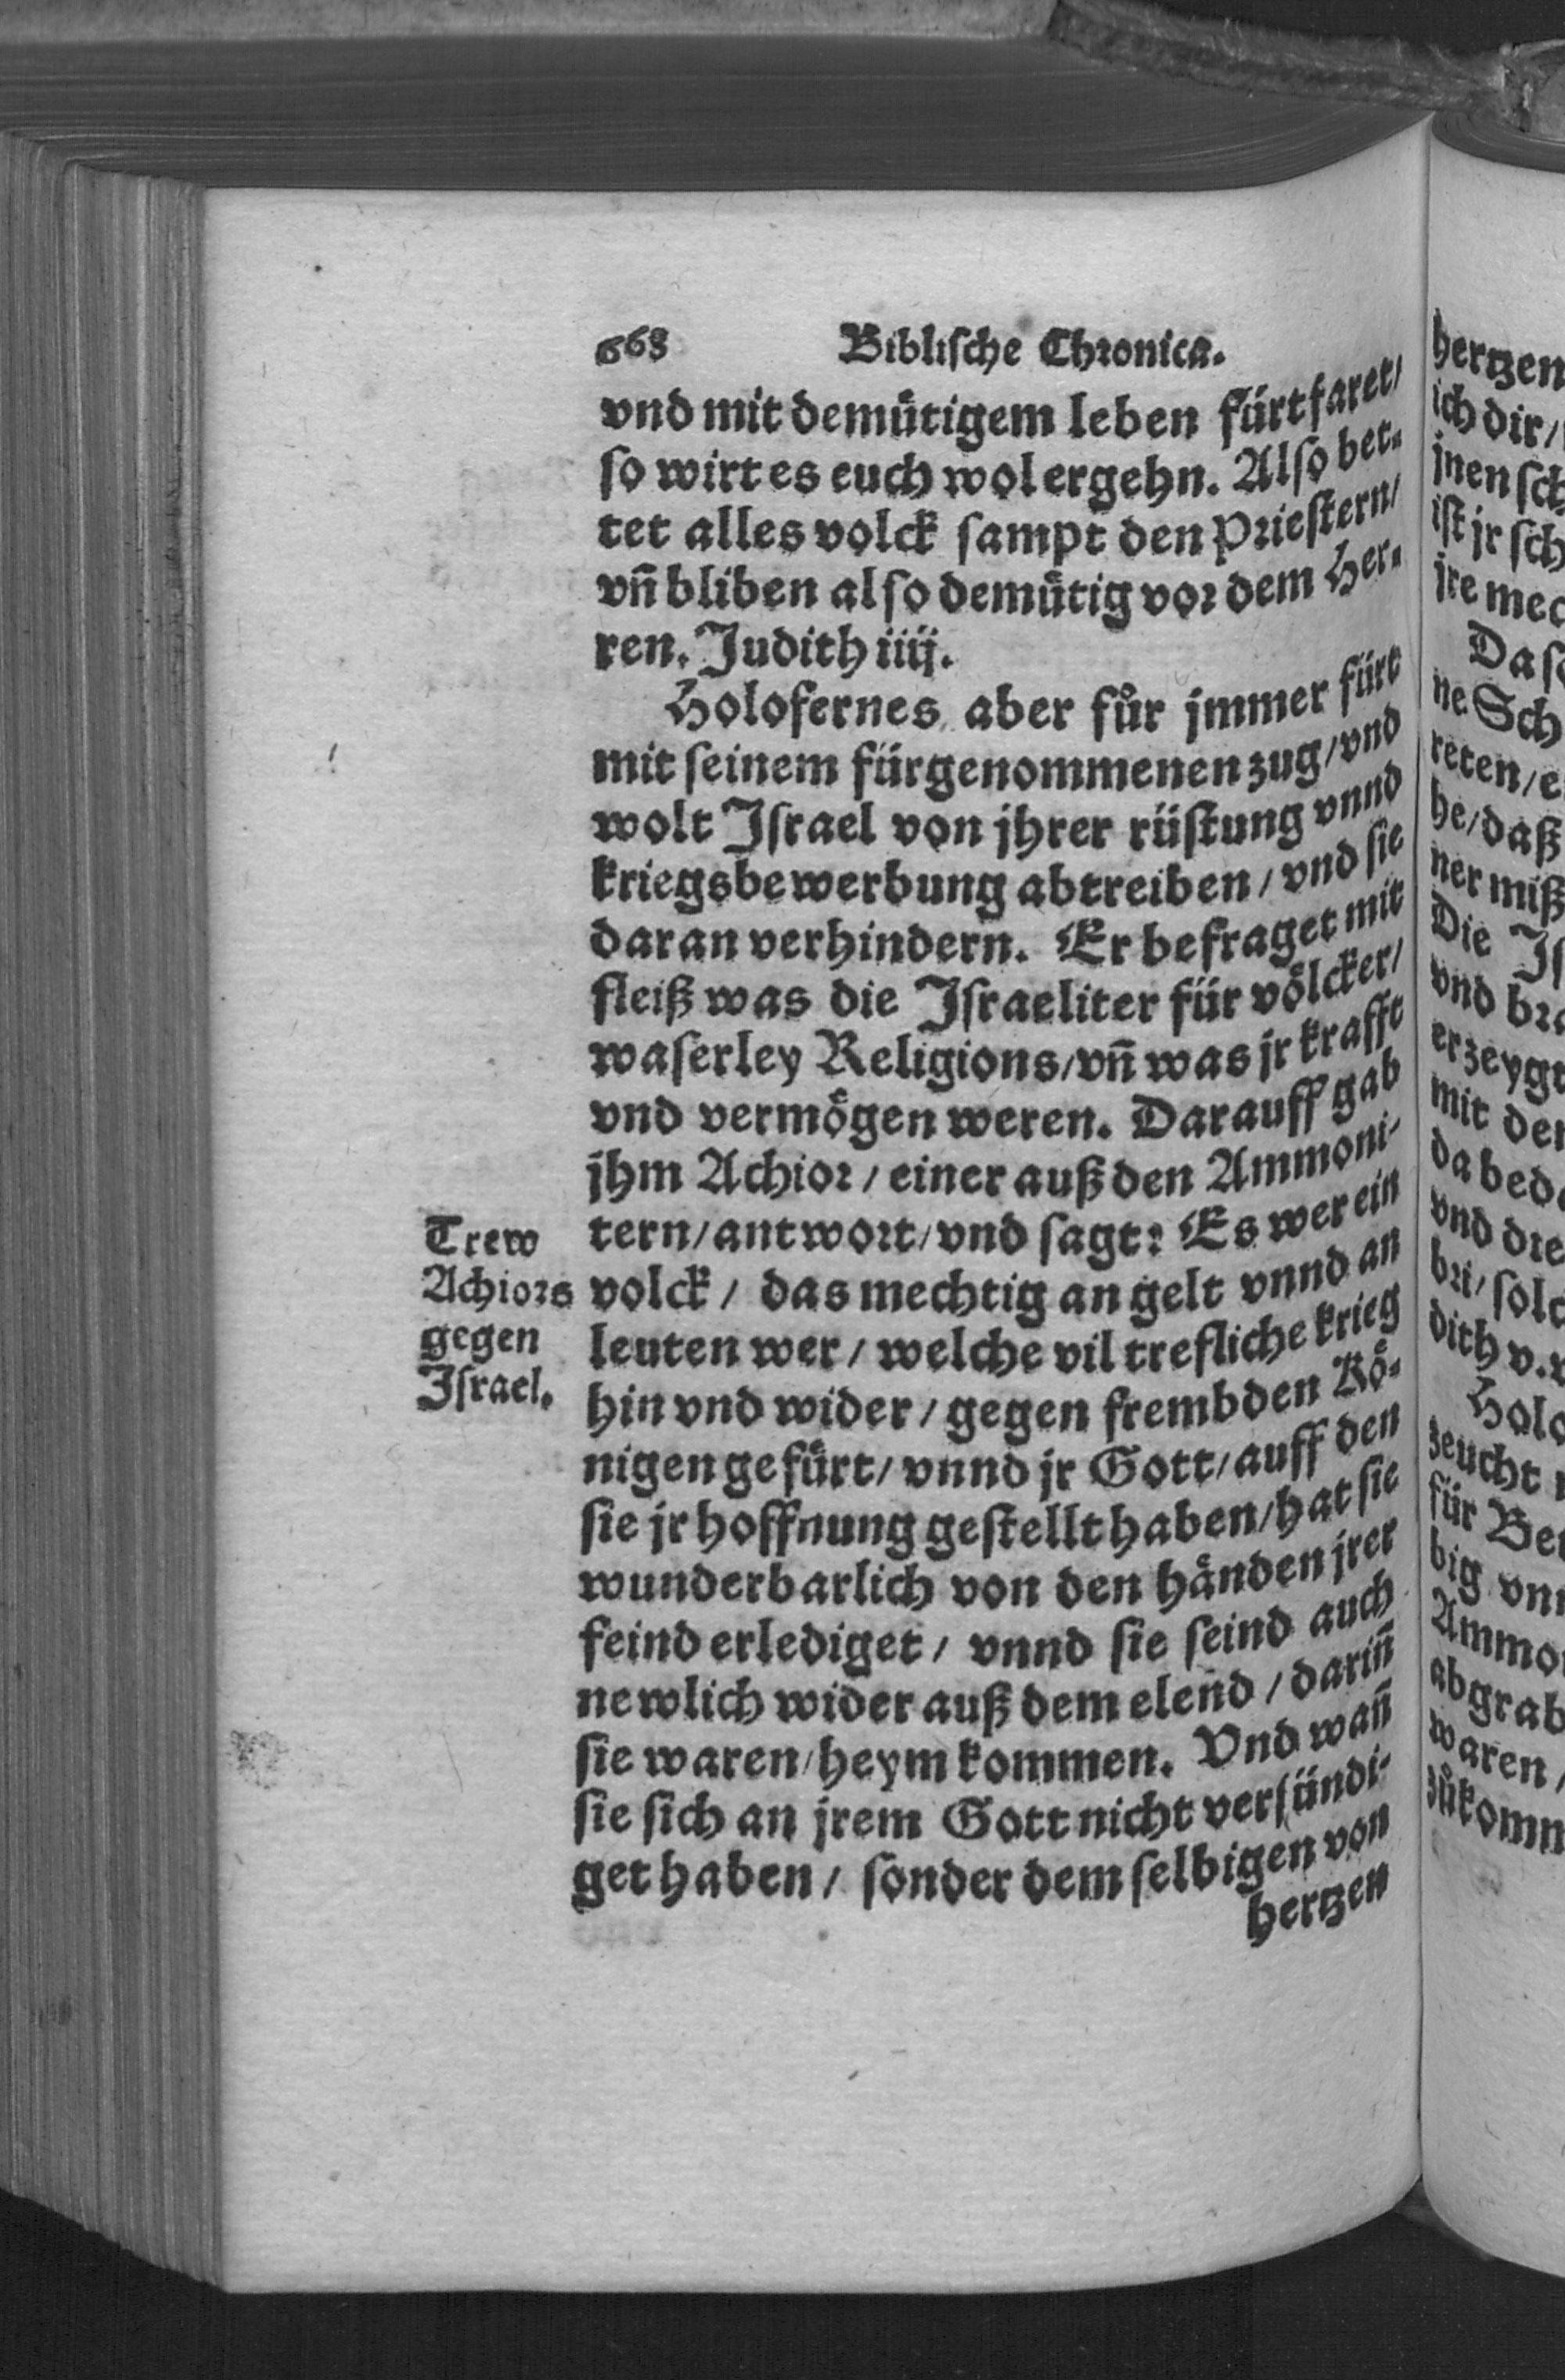 668 Biblische Chronica.
vnd mit demuͤtigem leben fürtfaret/
so wirt es euch wol ergehn. Also bet-
tet alles volck sampt den Priestern/
vñ bliben also demuͤtig vor dem Her-
ren. Judith iiij.
Holofernes aber fuͤr jmmer fürt
mit seinem fürgenommenen zug/ vnd
wolt Israel von jhrer rüstung vnnd
kriegsbewerbung abtreiben/ vnd sie
daran verhindern. Er befraget mit
fleiß was die Israeliter für voͤlcker/
waserley Religions/ vñ was jr krafft
vnd vermoͤgen weren. Darauff gab
jhm Achior/ einer auß den Ammoni-
tern/ antwort/ vnd sagt: Es wer ein
volck/ das mechtig an gelt vnnd an
leuten wer/ welche vil trefliche krieg
hin vnd wider/ gegen frembden Koͤ-
nigen gefuͤrt/ vnnd jr Gott/ auff den
sie jr hoffnung gestellt haben/ hat sie
wunderbarlich von den haͤnden jrer
feind erlediget/ vnnd sie seind auch
newlich wider auß dem elend/ dariñ
sie waren/ heym kommen. Vnd wañ
sie sich an jrem Gott nicht versündi-
get haben/ sonder dem selbigen von
hertzen
Trew
Achiors
gegen
Israel.
hertzen
ich dir/
jnen
ist jr
Die
vnd
mit
vnd
dith v.
zeucht
für
big
waren/